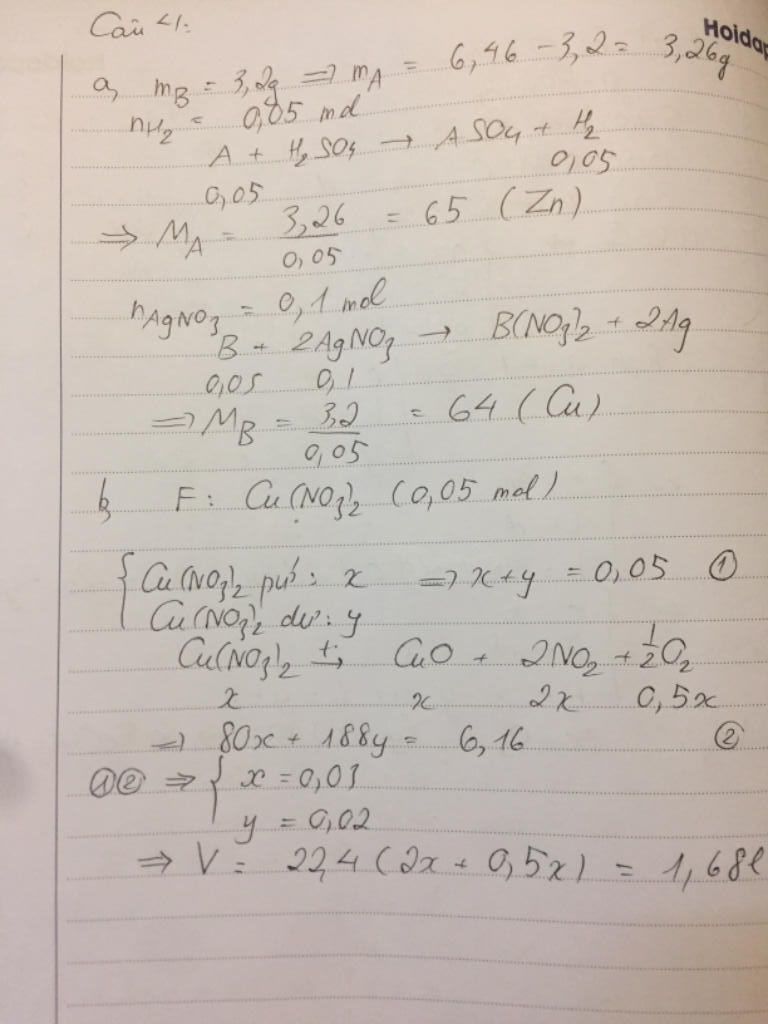 Câu 41:
Hoidap
a, mB = 3,2g => mA = 6,46 - 3,2 = 3,26g
nH2 = 0,05 mol
A + H2SO4 → ASO4 + H2
0,05 0,05
=> MA = 3,26 / 0,05 = 65 (Zn)
nAgNO3 = 0,1 mol
B + 2AgNO3 → B(NO3)2 + 2Ag
0,05 0,1
=> MB = 3,2 / 0,05 = 64 (Cu)
b, F: Cu(NO3)2 (0,05 mol)
{ Cu(NO3)2 pứ: x => x + y = 0,05 ①
Cu(NO3)2 dư: y
Cu(NO3)2 t°→ CuO + 2NO2 + 1/2 O2
x x 2x 0,5x
=> 80x + 188y = 6,16 ②
①② => { x = 0,03
y = 0,02
=> V = 22,4 (2x + 0,5x) = 1,68l